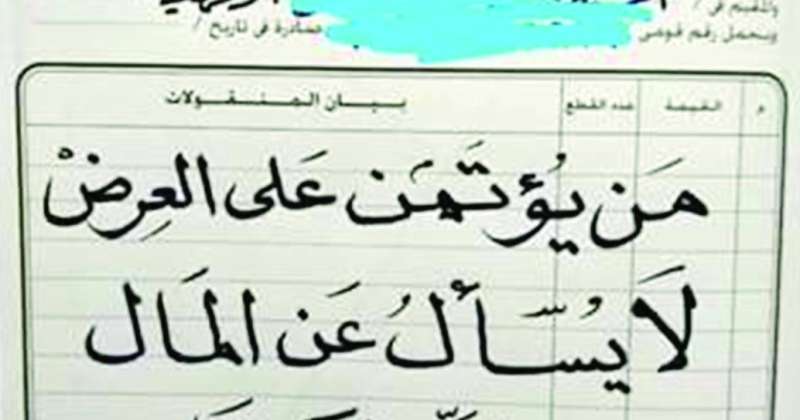 والمقيم في /
ويحمل رقم قومى
صادرة فى تاريخ /
م القيمة عدد القطع بيـان المـنـقـولات
مَن يُؤتَمَن عَلى العِرضْ
لَا يُسّأَلُ عَن المَال